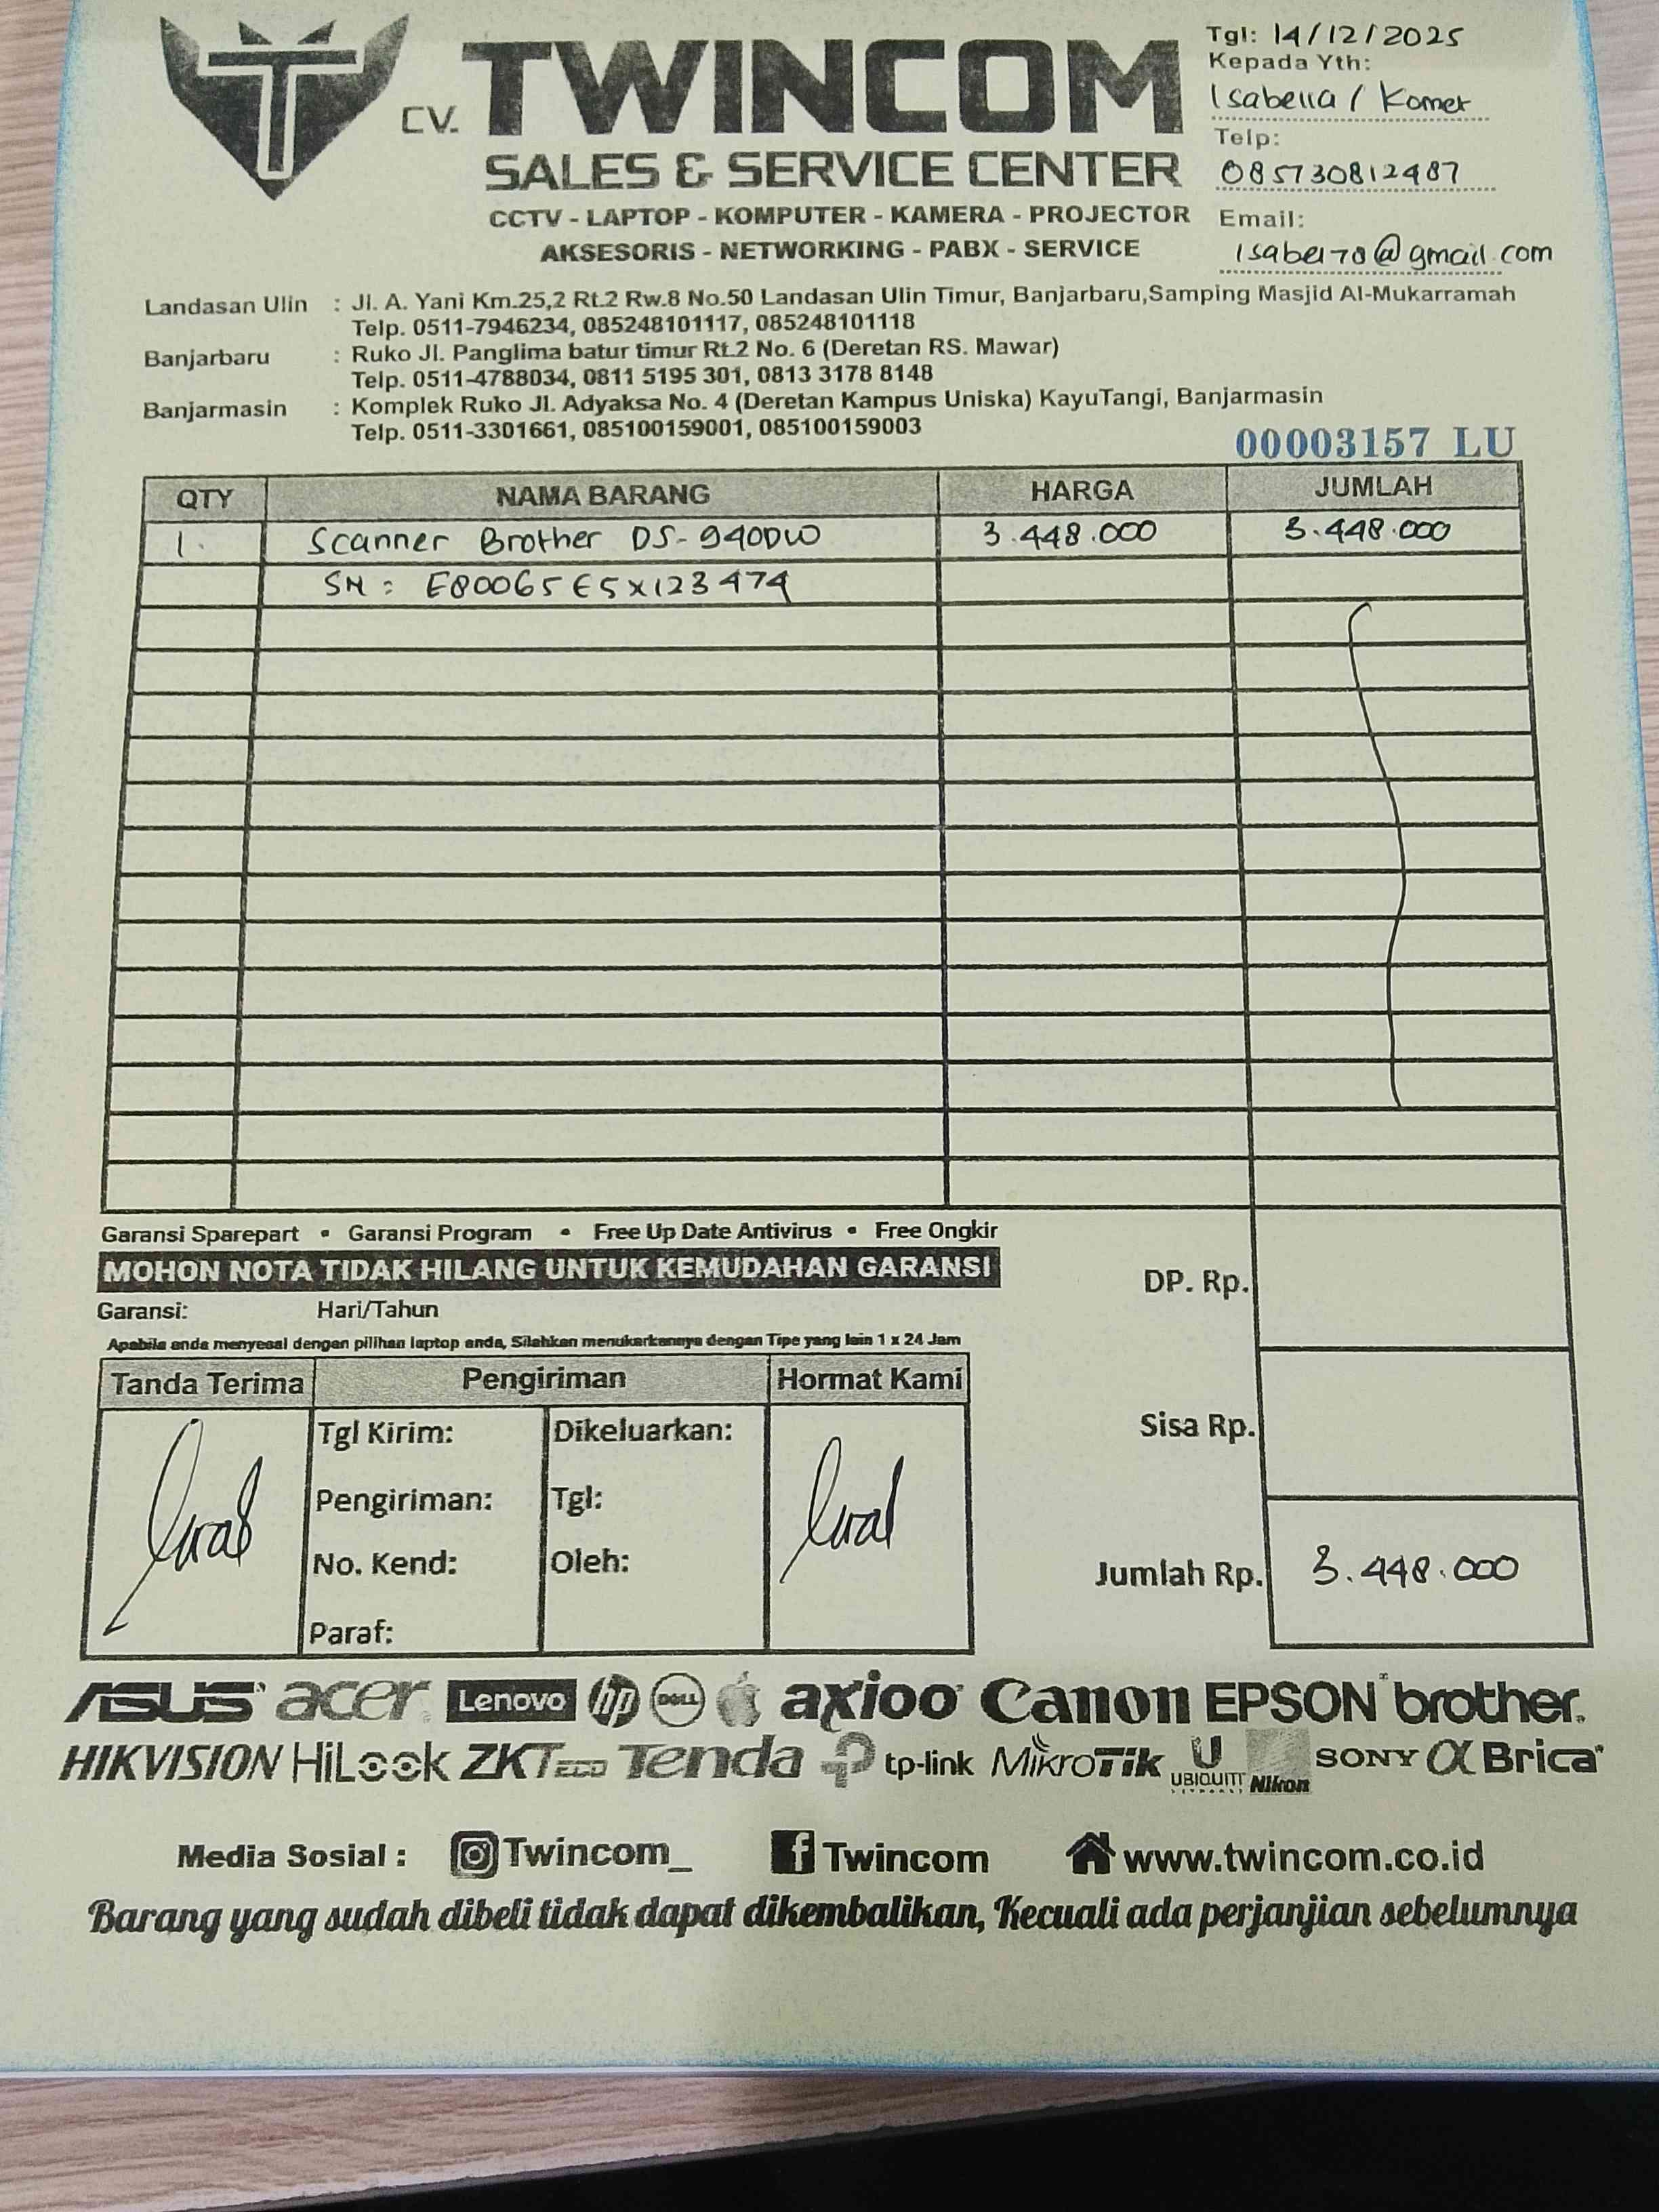 CV. TWINCOM
SALES & SERVICE CENTER
CCTV - LAPTOP - KOMPUTER - KAMERA - PROJECTOR
AKSESORIS - NETWORKING - PABX - SERVICE
Tgl: 14/12/2025
Kepada Yth:
Isabella / Komet
Telp:
085730812487
Email:
@gmail.com
Landasan Ulin : Jl. A. Yani Km.25,2 Rt.2 Rw.8 No.50 Landasan Ulin Timur, Banjarbaru,Samping Masjid Al-Mukarramah
Telp. 0511-7946234, 085248101117, 085248101118
Banjarbaru : Ruko Jl. Panglima batur timur Rt.2 No. 6 (Deretan RS. Mawar)
Telp. 0511-4788034, 0811 5195 301, 0813 3178 8148
Banjarmasin : Komplek Ruko Jl. Adyaksa No. 4 (Deretan Kampus Uniska) KayuTangi, Banjarmasin
Telp. 0511-3301661, 085100159001, 085100159003
00003157 LU
QTY NAMA BARANG HARGA JUMLAH
1. Scanner Brother DS-940DW 3.448.000 3.448.000
SN : E80065E5X123474
Garansi Sparepart • Garansi Program • Free Up Date Antivirus • Free Ongkir
MOHON NOTA TIDAK HILANG UNTUK KEMUDAHAN GARANSI
Garansi: Hari/Tahun
Apabila anda menyesal dengan pilihan laptop anda, Silahkan menukarkannya dengan Tipe yang lain 1 x 24 Jam
DP. Rp.
Sisa Rp.
Jumlah Rp. 3.448.000
Tanda Terima Pengiriman Hormat Kami
Tgl Kirim: Dikeluarkan:
Pengiriman: Tgl:
No. Kend: Oleh:
Paraf:
ASUS acer Lenovo hp DELL axioo Canon EPSON brother
HIKVISION HiLook ZKTeco Tenda tp-link MikroTik U UBIQUITI NETWORKS Nikon SONY α Brica
Media Sosial : Twincom_ Twincom www.twincom.co.id
Barang yang sudah dibeli tidak dapat dikembalikan, Kecuali ada perjanjian sebelumnya